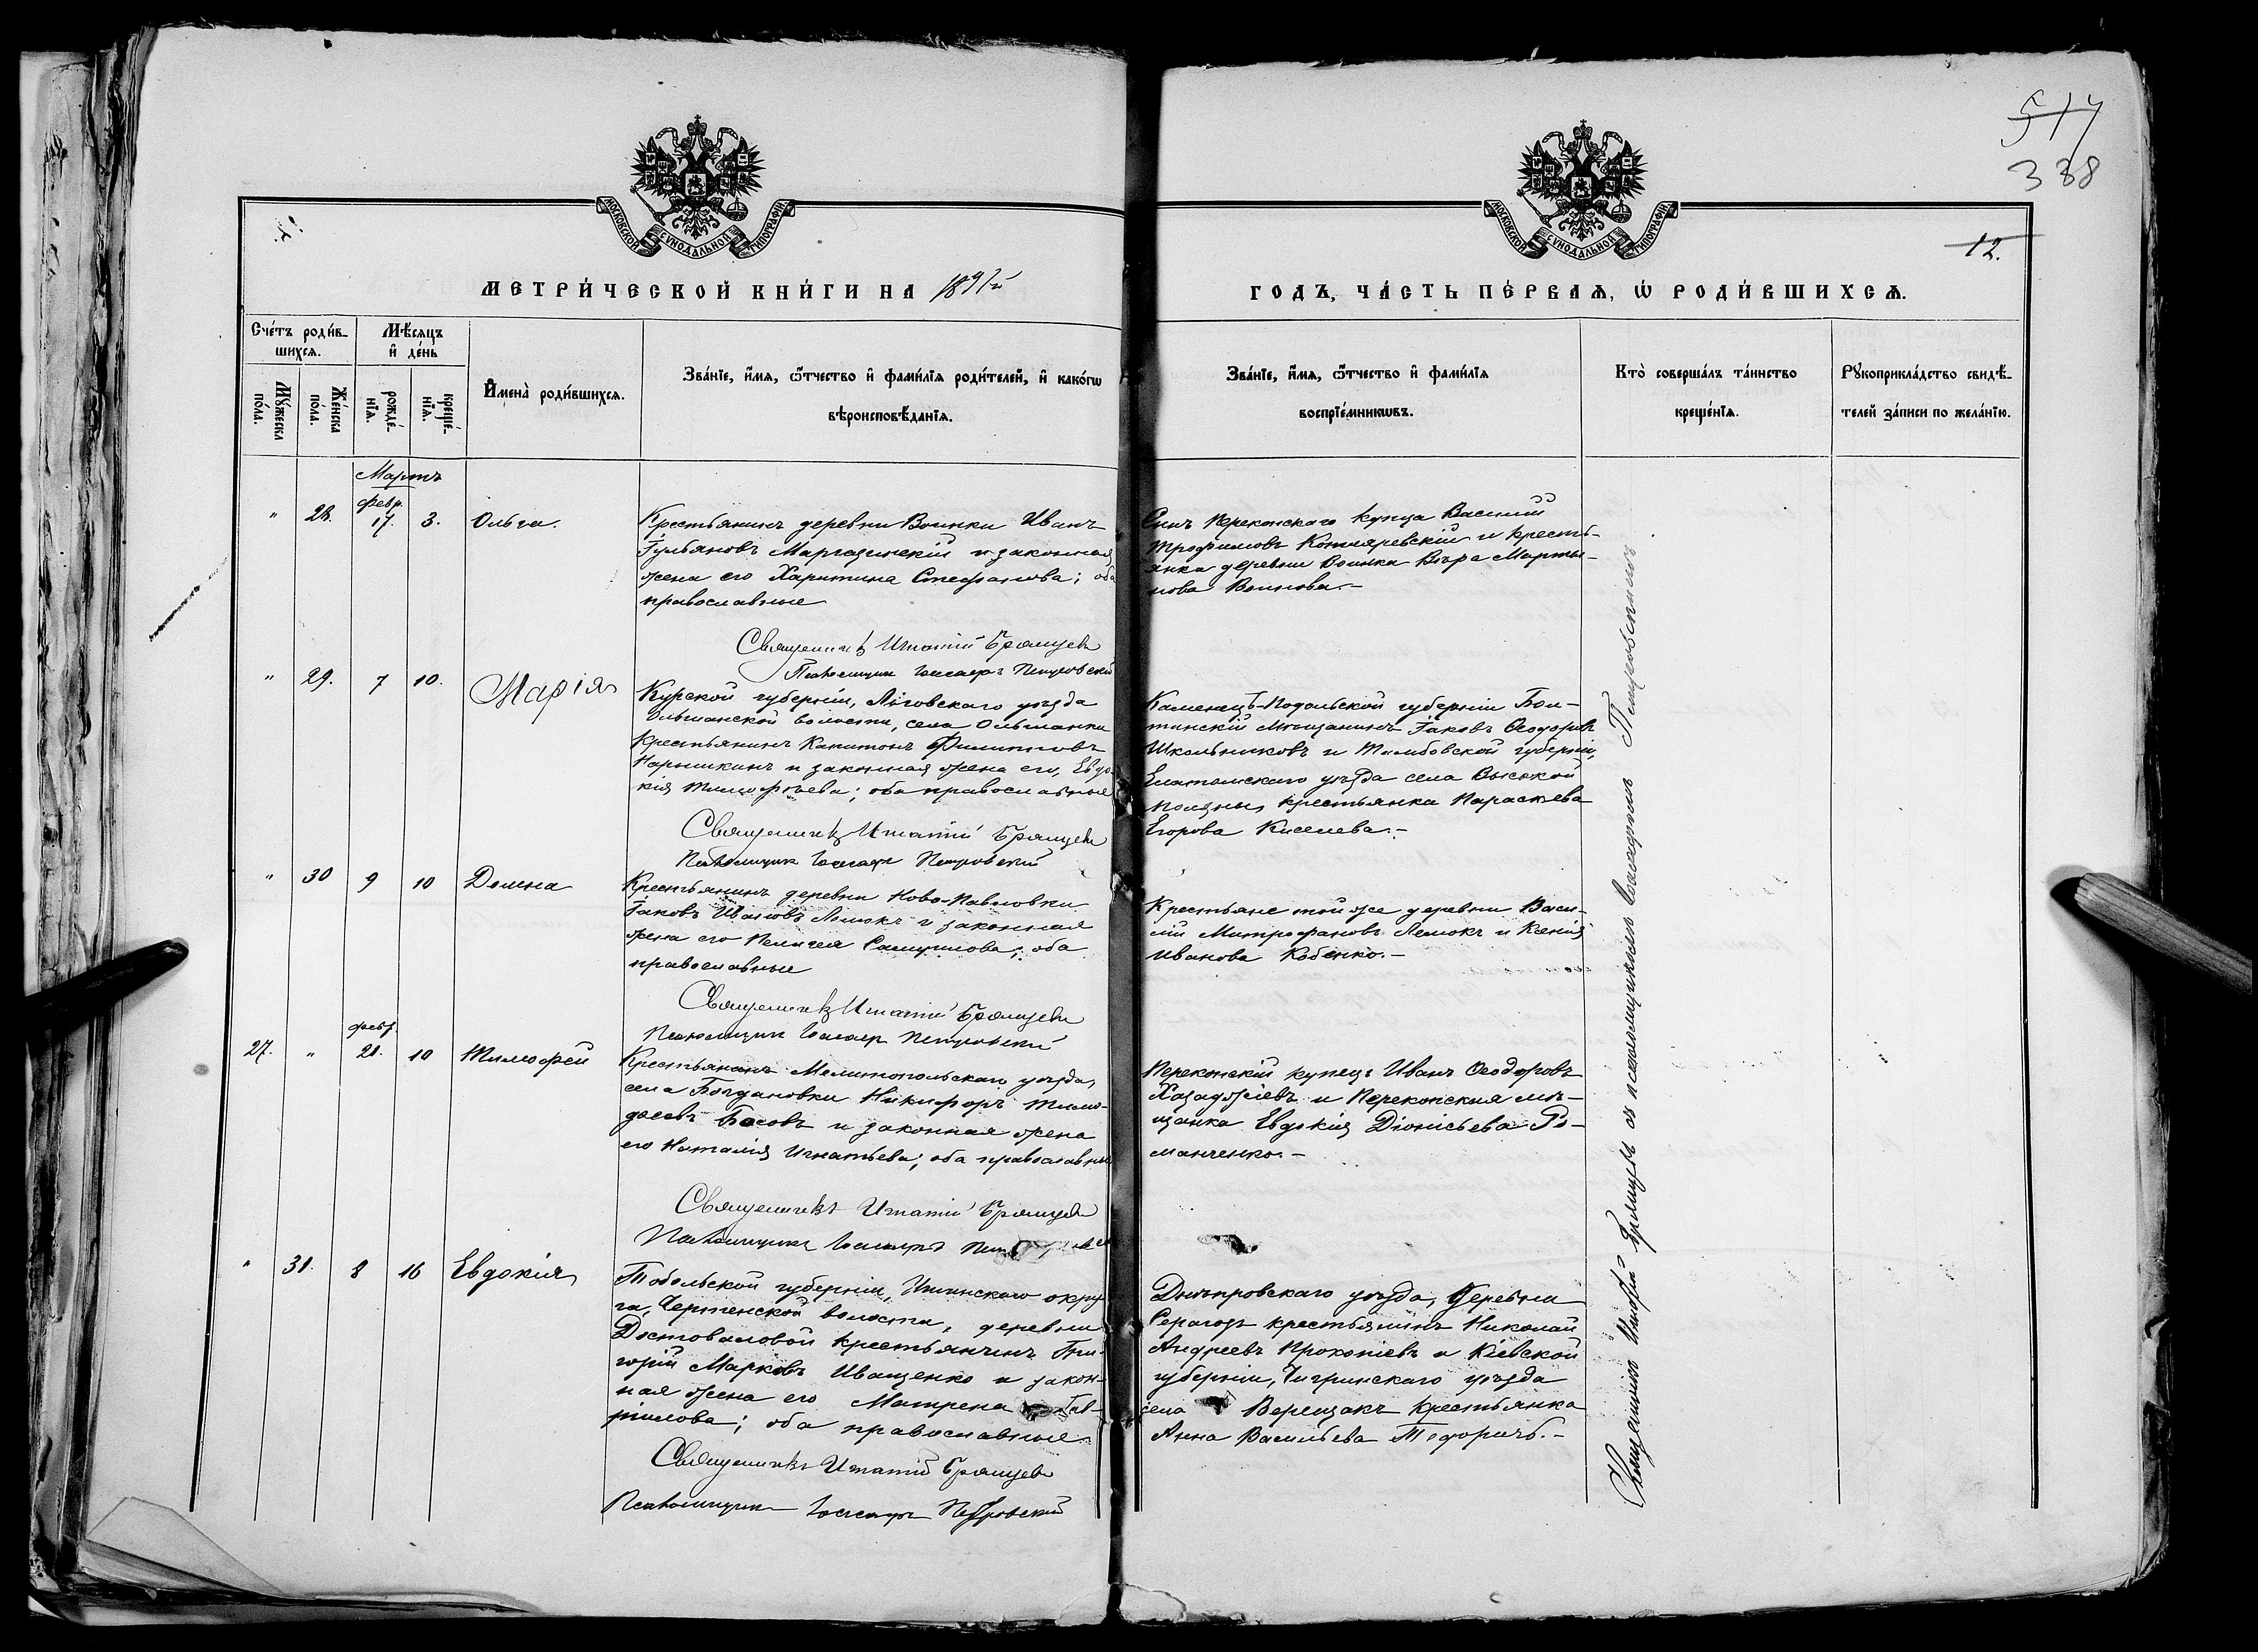 517
338
МОСКОВСКОЙ СѴНОДАЛЬНОЙ ТИПОГРАФІИ
МОСКОВСКОЙ СѴНОДАЛЬНОЙ ТИПОГРАФІИ
12.
МЕТРИ́ЧЕСКОЙ КНИ́ГИ НА 1891й
ГОДЪ, ЧА́СТЬ ПЕ́РВАЯ, Ѡ РОДИ́ВШИХСЯ.
Сче́тъ роди́в-
шихся.
Мѣ́сяцъ
и҆ де́нь
Мꙋ́жеска
по́ла.
Же́нска
по́ла.
рожде́-
нїя.
креще́-
нїя.
И҆мена̀ роди́вшихся.
Зва́нїе, и҆́мя, ѻ҆́тчество и҆ фами́лїя роди́телей, и҆ како́гѡ
вѣроисповѣ́данїя.
Зва́нїе, и҆́мя, ѻ҆́тчество и҆ фами́лїя
воспрїе́мникѡвъ.
Кто̀ соверша́лъ та́инство
креще́нїя.
Рꙋкоприкла́дство свидѣ́-
телей за́писи по жела́нїю.
Мартъ
" 28. февр. 17. 3. Ольга.
Крестьянинъ деревни Воинки Иванъ
и законная
жена его Харитина Стефанова; оба
православные
Священникъ Игнатій Брянцевъ
Псаломщикъ Іоасафъ Петровский
Сынъ Перекопскаго купца Василій
Трофимовъ Котляревскій и кресть-
янка деревни Воинка Вѣра Марты-
нова Воинова.-
" 29. 7 10. Марія
Курской губерніи, Льговскаго уѣзда
Ольшанской волости, села Ольшанки
Крестьянинъ Капитонъ Филиповъ
Нарышкинъ и законная жена его, Евдо-
кія Тимофѣева; оба православные
Священникъ Игнатій Брянцевъ
Псаломщикъ Іоасафъ Петровский
Каменецъ-Подольской губерніи Бал-
мѣщанинъ Іаковъ Ѳеодоровъ
Школьниковъ и Тамбовской губерніи,
Елатомскаго уѣзда села Высокой
Поляны, крестьянка Параскева
Егорова Киселева.-
" 30 9 10 Домна
Крестьянинъ деревни Ново-Павловки
Іаковъ Ивановъ Лемокъ и законная
жена его Пелагея Самуилова; оба
православные
Священникъ Игнатій Брянцевъ
Псаломщикъ Іоасафъ Петровский
Крестьяне той же деревни Васи-
лій Митрофановъ Лемокъ и Ксенія
Иванова Кобенко.-
27. " февр. 21. 10 Тимофей
Крестьянинъ Мелитопольскаго уѣзда,
села Богдановки Никифоръ Тимо-
Басовъ и законная жена
его Наталія Игнатьева; оба православные
Священникъ Игнатій Брянцевъ
Псаломщикъ Іоасафъ
Перекопскій купецъ Иванъ Ѳеодоровъ
Хаджіевъ и Перекопская мѣ-
щанка Евдокія Діонисьева Ро-
манченко.-
" 31. 8 16 Евдокія
Тобольской губерніи, Ишимскаго окру-
га, волости, деревни
Достоваловой крестьянинъ Гри-
горій Марковъ Иващенко и закон-
ная жена его Матрена Гав-
рилова; оба православные.
Священникъ Игнатій Брянцевъ
Псаломщикъ Іоасафъ Петровский
Днѣпровскаго уѣзда, деревни
Серагозъ крестьянинъ Николай
Андреевъ Прокопіевъ и Кіевской
губерніи, Чигринскаго уѣзда
села Верещакъ крестьянка
Анна Васильева Тодоричъ.-
Священникъ Игнатій Брянцевъ съ псаломщикомъ Іоасафомъ Петровскимъ